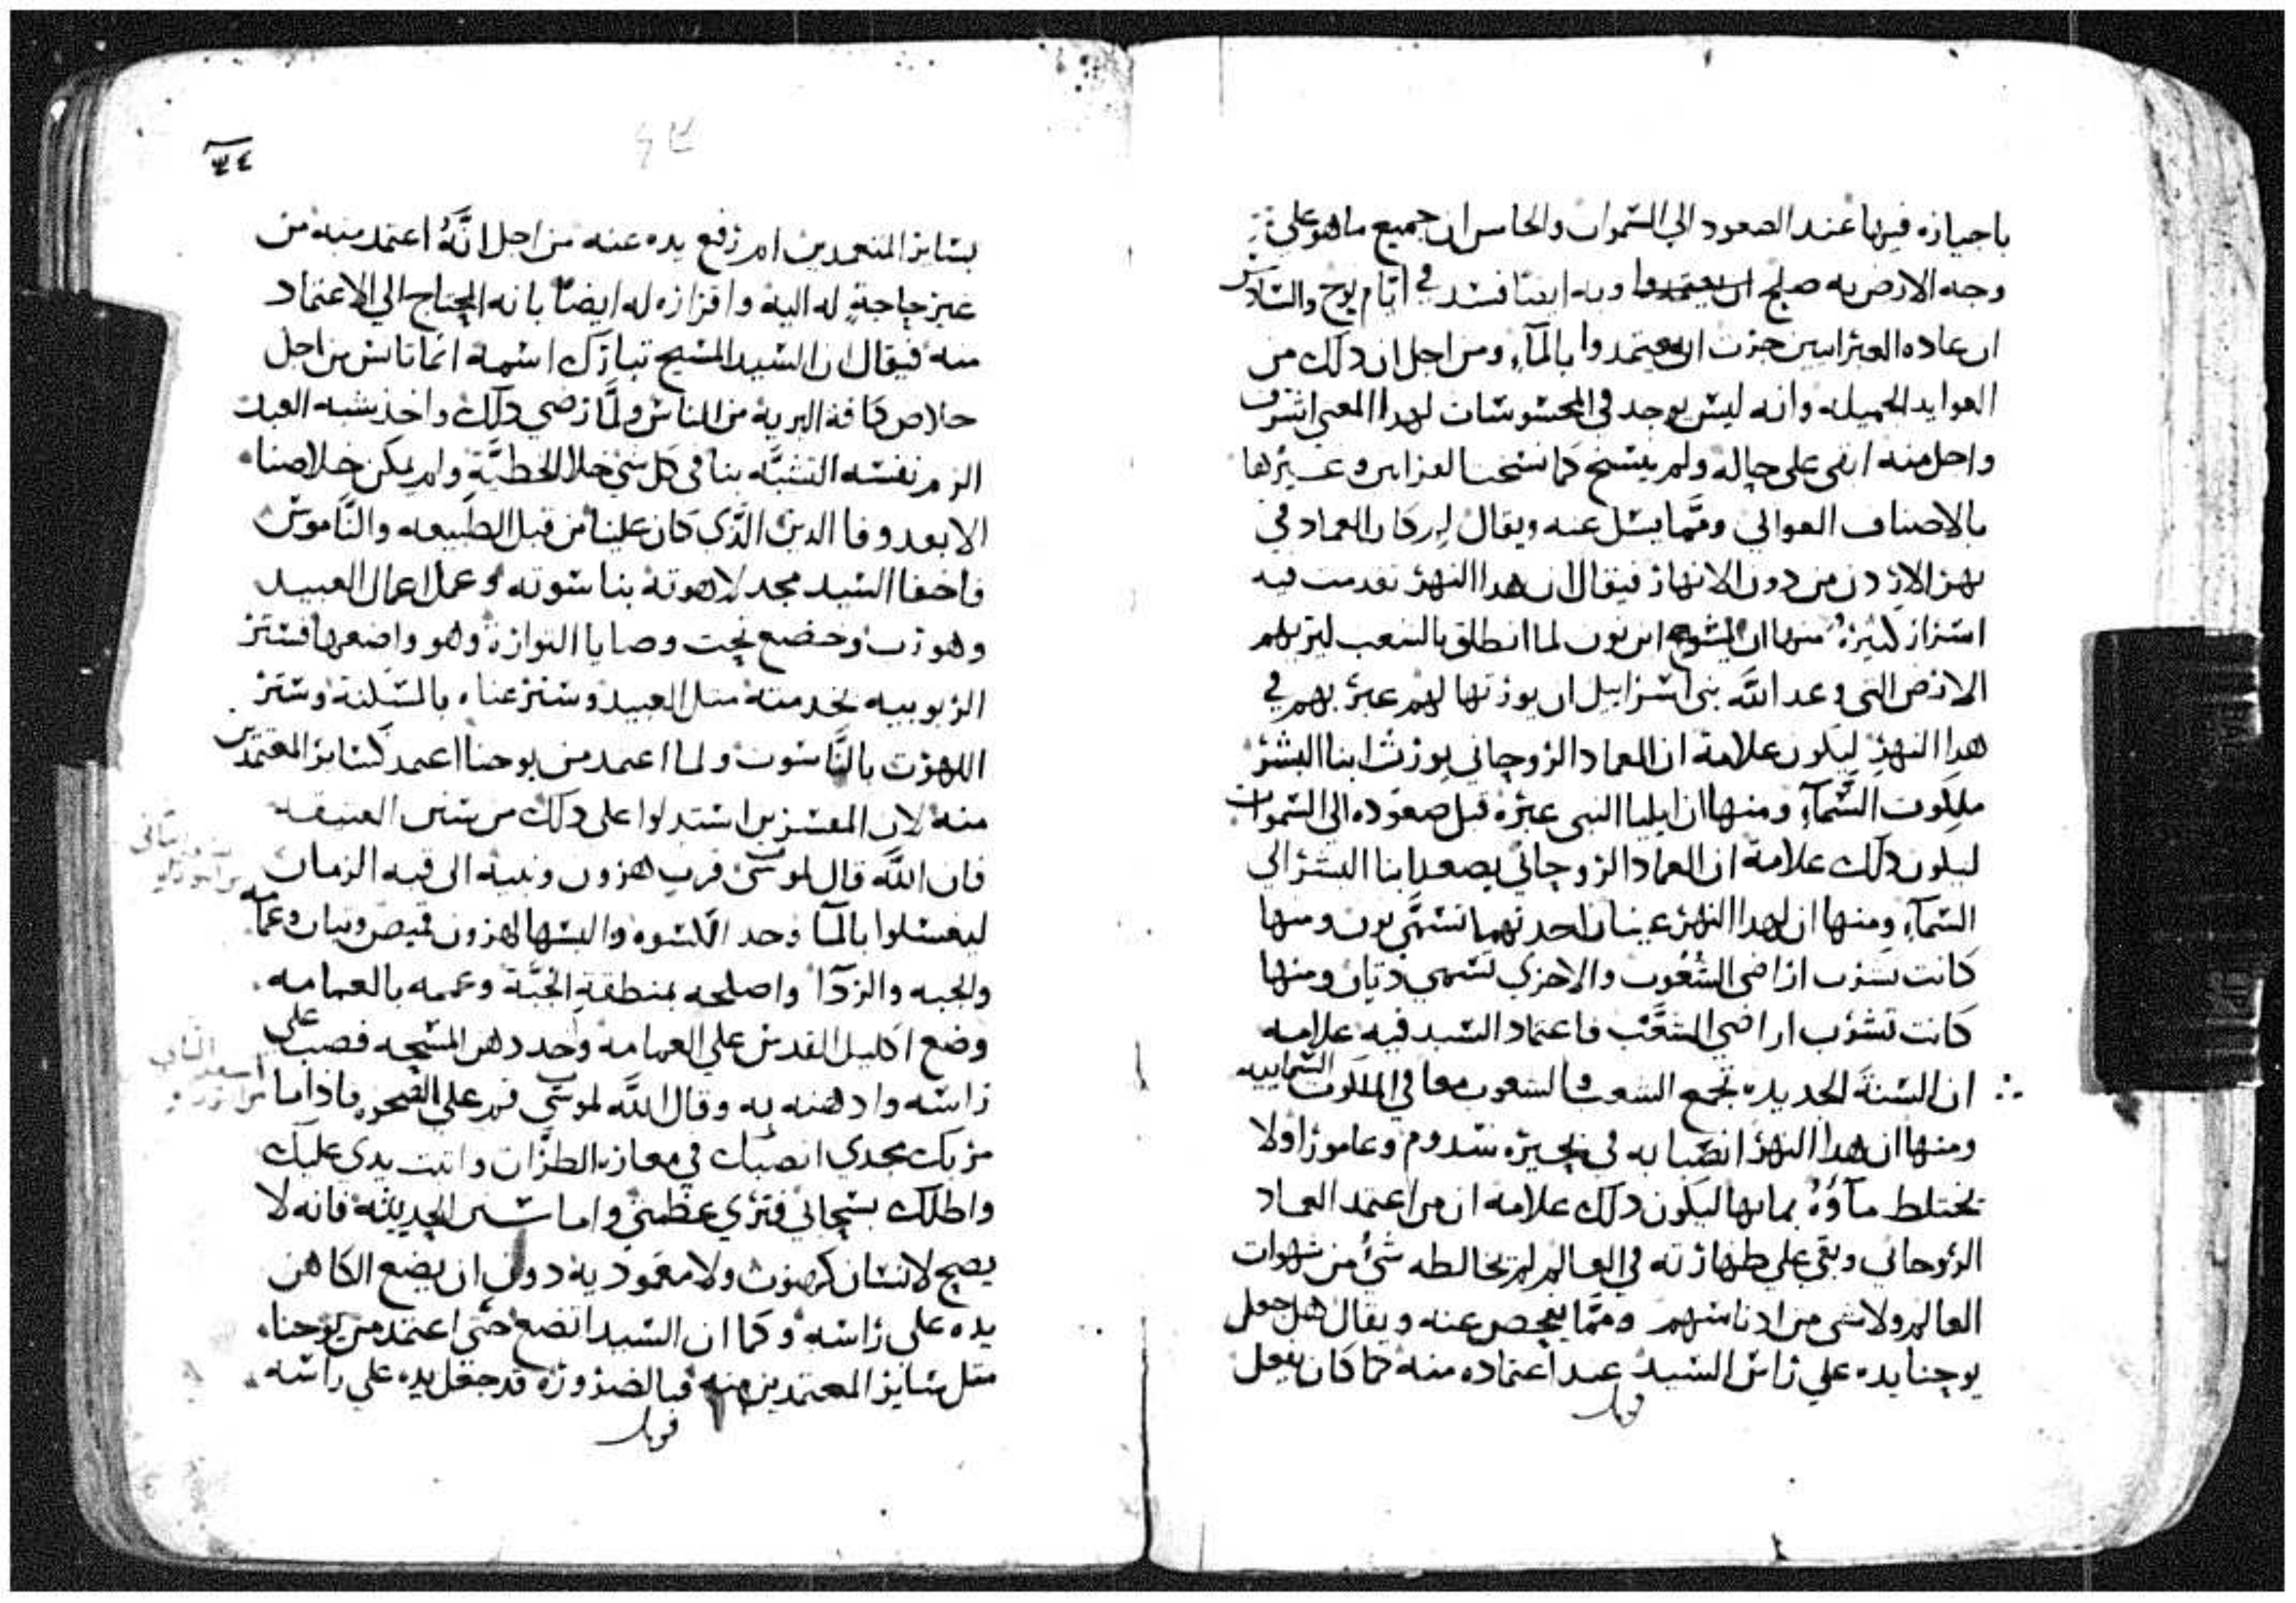 باجيازه فيها عند الصعود الي السموات والخامس ان جميع ما هو علي
وجه الارض به صلح ان يعتمدوا وبه ايضا فسد في ايام نوح والسادس
ان عاده العبرانيين جرت ان يعتمدوا بالمآء ومن اجل ان دلك من
العوايد الجميله وانه ليس يوجد في المحسوسات لهدا المعني اشرف
واجل منه ابقي علي حاله ولم ينسخ كما نسخت القرابين وغيرها
بالاصناف العوالي ومما يسل عنه ويقال لم كان العماد في
نهر الاردن من دون الانهار فيقال ان هدا النهر تقدمت فيه
اسرار كثيرة منها ان يشوع ابن نون لما انطلق بالشعب ليريهم
الارض التي وعد الله بني اسراييل ان يورثها لهم عبر بهم في
هدا النهر ليكون علامة ان العماد الروحاني يورث ابنا البشر
ملكوت السمآء ومنها ان ايليا النبي عبره قبل صعوده الي السموات
ليكون دلك علامة ان العماد الروحاني يصعد ابنا البشر الي
السمآء ومنها ان لهدا النهر عينان احدتهما تسمي يون ومنها
كانت تشرب اراضي الشعوب والاخري تسمي دنان ومنها
كانت تشرب اراضي الشعب فاعتماد السيد فيه علامه
ان السنة الجديده تجمع الشعب والشعوب معا في الملكوت السماييه
ومنها ان هدا النهر انصبابه في بحيرة سدوم وعامورا ولا
تختلط مآوه بمايها ليكون دلك علامه ان من اعتمد العماد
الروحاني وبقي علي طهارته في العالم لم تخالطه شئ من شهوات
العالم ولا شي من ادناسهم ومما يفحص عنه ويقال هل جعل
يوحنا يده علي راس السيد عند اعتماده منه كما كان يفعل
قوبل
٣٤
بساير المتعمدين ام رفع يده عنه من اجل انه اعتمد منه من
غير حاجة له اليه واقراره له ايضا بانه المحتاج الي الاعتماد
منه فيقال ان السيد المسيح تبارك اسمه انما تانس من اجل
خلاص كافة البرية من الناس ولما رضي دلك واخذ شبه العبد
الزم نفسه التشبه بنا في كل شي خلا الخطية ولم يمكن خلاصنا
الا بعد وفا الدين الذي كان علينا من قبل الطبيعه والناموس
فاخفا السيد مجد لاهوته بناسوته وعمل اعمال العبيد
وهو رب وخضع تحت وصايا التوراة وهو واضعها فستر
الربوبيه بخدمته مثل العبيد وستر غناه بالمسكنة وستر
اللهوت بالناسوت ولما اعتمد من يوحنا اعتمد كساير المعتمدين
منه لان المفسرين استدلوا علي دلك من سنن العتيقه
فان الله قال لموسي قرب هرون وبنيه الي قبه الزمان
ليغسلوا بالمآ وخد الكسوه والبسها لهرون قميص وتبان وعمامه
والجبه والردآ واصلحه بمنطقة الجبة وعممه بالعمامه
وضع اكليل القدس علي العمامه وخد دهن المسحه فصب علي
راسه وادهنه به وقال الله لموسي قم علي الصخره فاذا ما
مر بك مجدي انصبك في مغارة الطران واتبت يدي عليك
واظلك بسحابي فتري عظمتي واما سنن الحديثة فانه لا
يصح لانسان كهنوت ولا معمودية دون ان يضع الكاهن
يده علي راسه وكما ان السيد اتضع حتي اعتمد من يوحنا
مثل ساير المعتمدين منه فبالضروره قد جعل يده علي راسه
قوبل